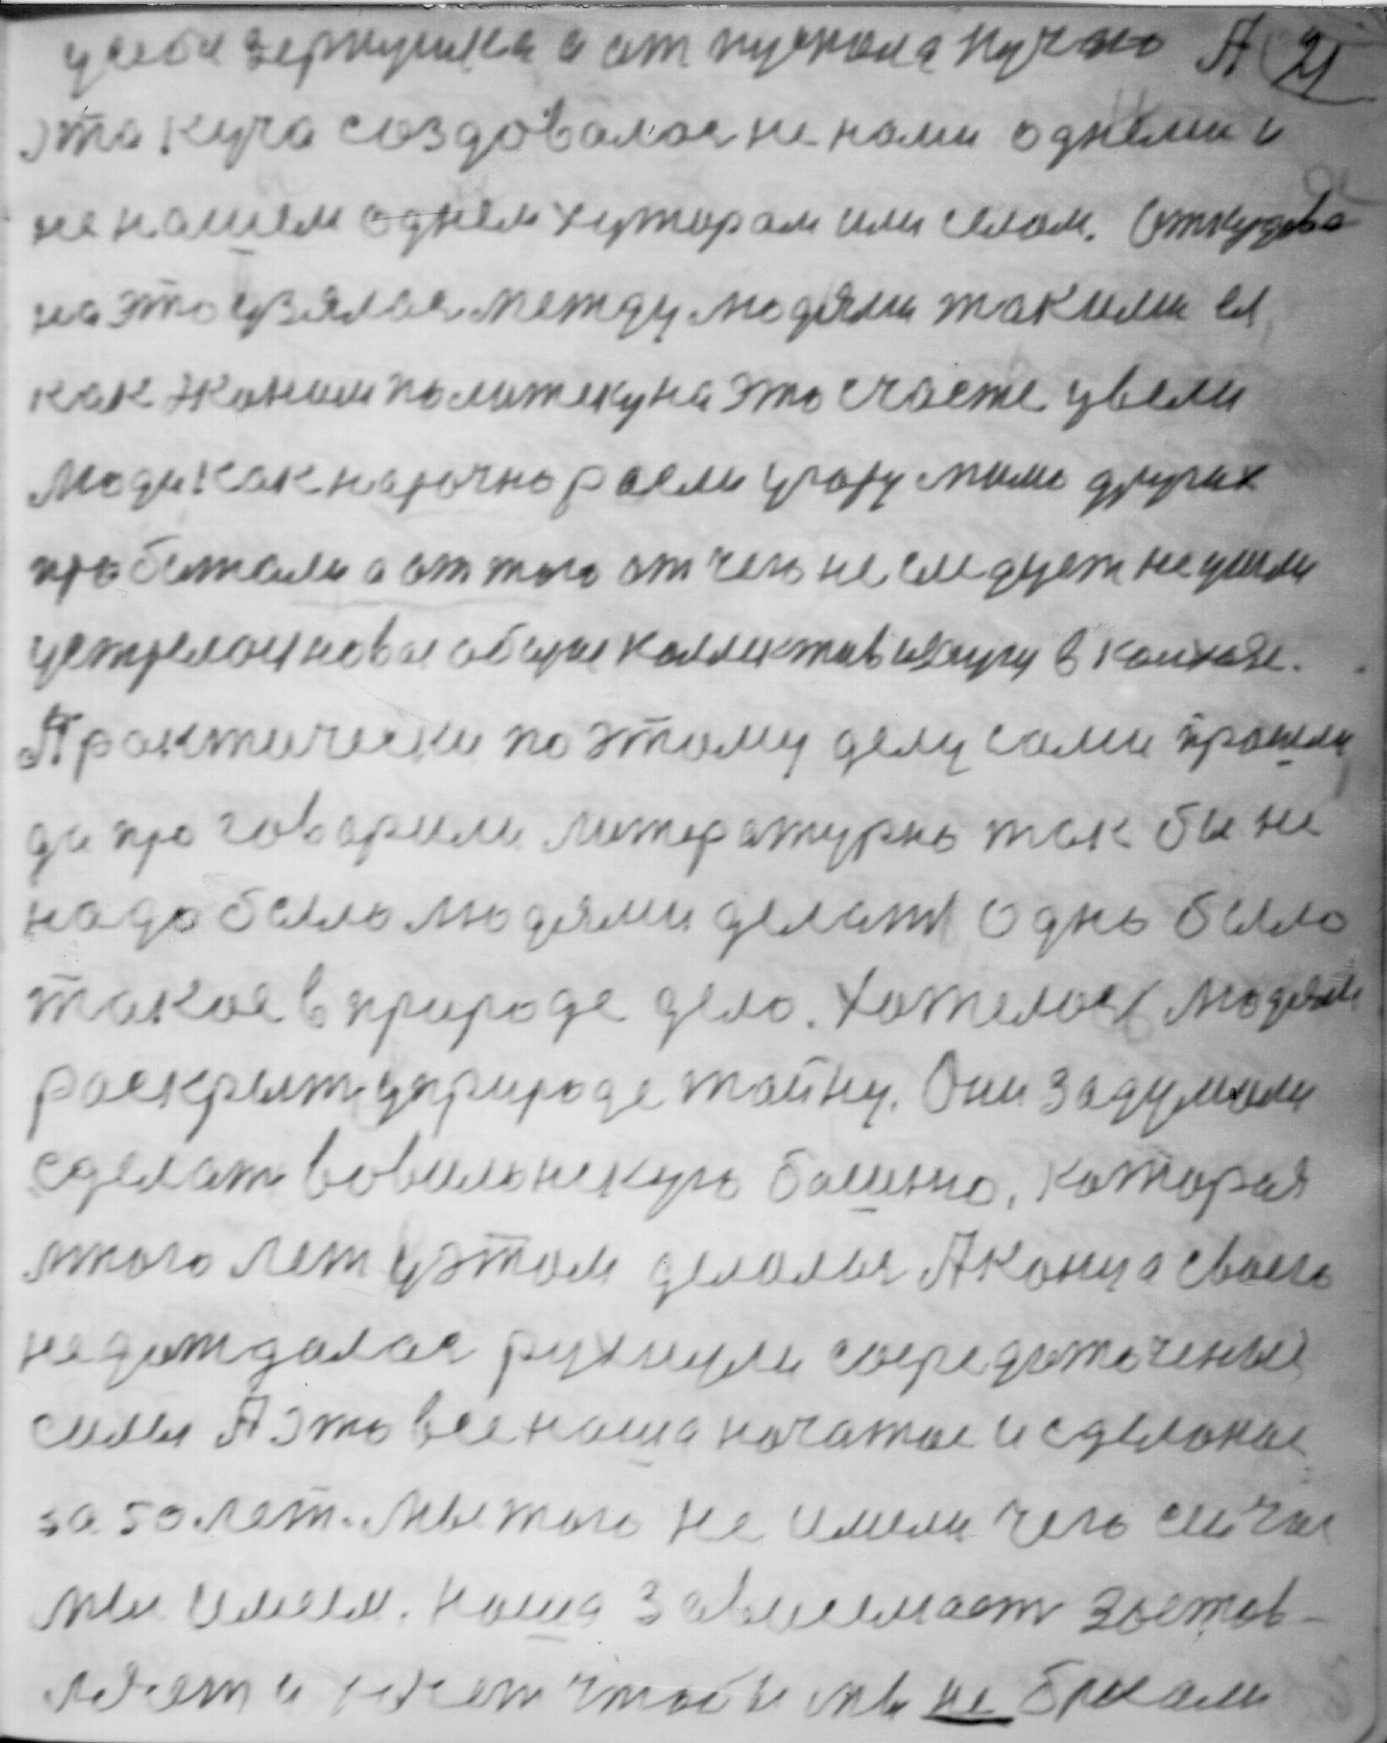 у себя зернушка а от пускала кучаю А 21
эта куча создовалася не нами однеми и
не нашем однем хуторам или селом. Откудова
на это узялася между людями такими ея
как эконом политеку на это счасте увели
люди как нарочно расли угару мимо других
пробежали а от того от чего не следует не ушли
устрелои новые общие коллектив в колхозе.
Практически по этому делу сами прошли
да про говарили литературно так бы не
надо было людями делат одно было
такое в природе дело. Хотелося людями
раскрыт у природе тайну. Они задумали
сделат вовилонскую башню, которая
много лет у этом делалася А конца своего
не дождалася рухнули сосредоточеные
силы А это все наша начатое и сделоное
за 50 лет. Мы того не имели чего сичас
мы имеем. Наша зависимаст застав-
ляет и хочет чтобы мы не брихали